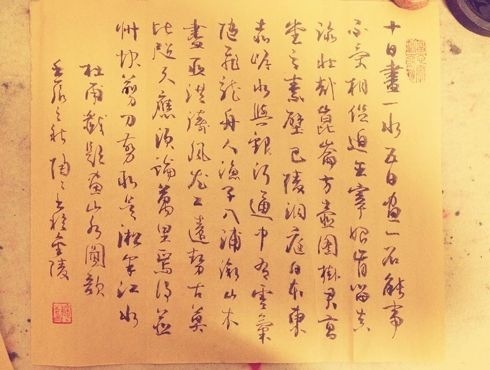 十日畫一水五日畫一石能事
不受相促迫王宰始肯留真
跡壯哉崑崙方壺圖掛君高
堂之素壁巴陵洞庭日本東
赤岸水與銀河通中有雲氣
隨飛龍舟人漁子入浦漵山木
盡亞洪濤風尤工遠勢古莫
比咫尺應須論萬里焉得並
州快剪刀剪取吳淞半江水
杜甫戲題畫山水圖歌
壬辰之秋陶書於金陵